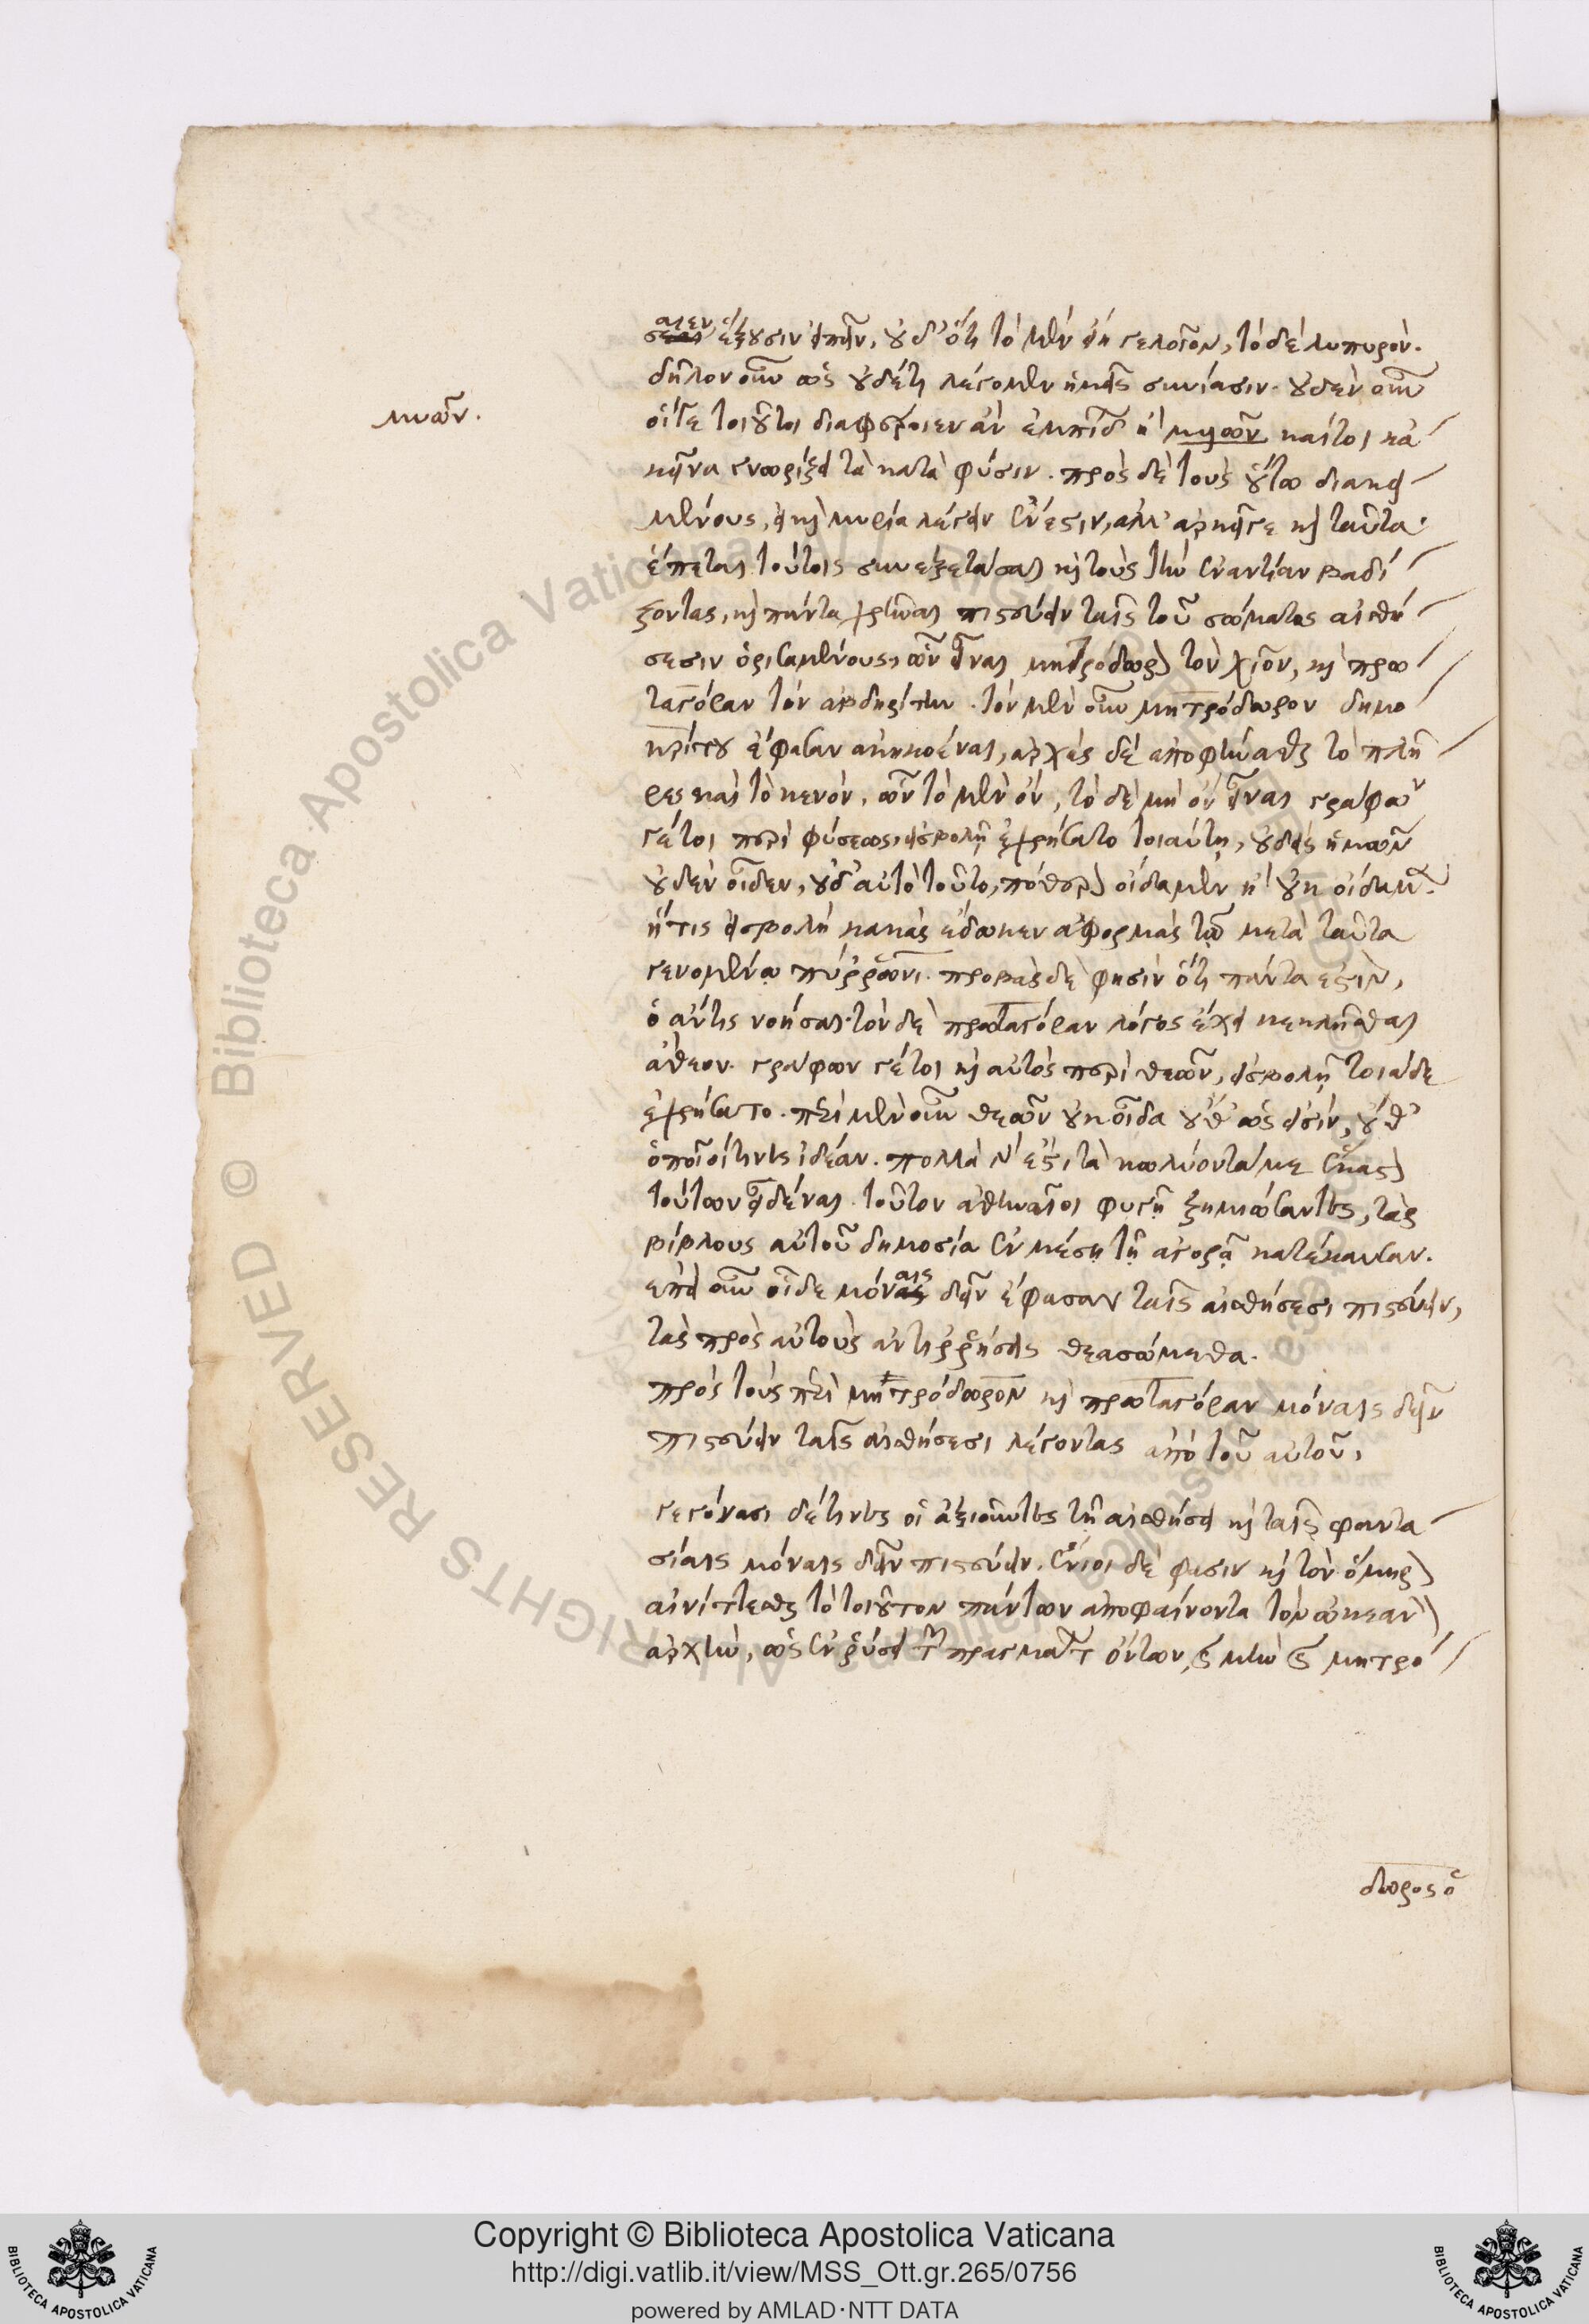 σαιεν ἕξουσιν εἰπεῖν, οὐδ' ὅτι τὸ μὲν εἴη γελοῖον, τὸ δὲ λυπηρόν.
δῆλον οὖν ὡς οὐδ' ἔτι λέγομεν ἡμεῖς συνίασιν. οὐδὲν οὖν
οἵγε τοιοῦτοι διαφέροιεν ἂν ἐμπίδων ἢ μυῶν καίτοι κἀ
κεῖνα γνωρίζει τὰ κατὰ φύσιν. πρὸς δὲ τοὺς οὕτω διακει
μένους, εἰ καὶ μυρία λέγειν ἔνεστιν, ἀλλ' ἀρκεῖ γε καὶ ταῦτα.
ἕπεται τούτοις συνεξετάσαι καὶ τοὺς τὴν ἐναντίαν βαδί
ζοντας, καὶ πάντα χρῆναι πιστεύειν ταῖς τοῦ σώματος αἰσθή
σεσιν ὁρισαμένους, ὧν εἶναι μητρόδωρον τὸν χῖον, καὶ πρω
ταγόραν τὸν ἀβδηρίτην. τὸν μὲν οὖν μητρόδωρον δημο
κρίτου ἔφασαν ἀκηκοέναι, ἀρχὰς δὲ ἀποφήνασθαι τὸ πλῆ
ρες καὶ τὸ κενόν. ὧν τὸ μὲν ὂν, τὸ δὲ μὴ ὂν εἶναι γράφων
γέτοι περὶ φύσεως, εἰσβολῇ ἐχρήσατο τοιαύτῃ, οὐδεὶς ἡμῶν
οὐδὲν οἶδεν, οὐδ' αὐτὸ τοῦτο, πότερον οἴδαμεν ἢ οὐκ οἴδαμεν.
ἥτις εἰσβολὴ κακὰς ἔδωκεν ἀφορμὰς τῷ μετὰ ταῦτα
γενομένῳ πύρρωνι. προβὰς δὲ φησὶν ὅτι πάντα ἐστὶν,
ὃ ἄν τις νοήσαι. τὸν δὲ πρωταγόραν λόγος ἔχει κεκλῆσθαι
ἄθεον. γράφων γέτοι καὶ αὐτὸς περὶ θεῶν, εἰσβολῇ τοιᾷδε
ἐχρήσατο. περὶ μὲν οὖν θεῶν οὐκ οἶδα οὔθ' ὡς εἰσὶν, οὔθ'
ὁποῖοί τινες ἰδέαν. πολλὰ γ' ἐστι τὰ κωλύοντά με ἕκαστον
τούτων εἰδέναι. τοῦτον ἀθηναῖοι φυγῇ ζημιώσαντες, τὰς
βίβλους αὐτοῦ δημοσίᾳ ἐν μέσῃ τῇ ἀγορᾷ κατέκαυσαν.
ἐπεὶ οὖν οἵδε μόναις δεῖν ἔφασαν ταῖς αἰσθήσεσι πιστεύειν,
τὰς πρὸς αὐτοὺς ἀντιρρήσεις θεασώμεθα.
πρὸς τοὺς περὶ μητρόδωρον καὶ πρωταγόραν μόναις δεῖν
πιστεύειν ταῖς αἰσθήσεσι λέγοντας ἀπὸ τοῦ αὐτοῦ.
γεγόνασι δέ τινες οἱ ἀξιοῦντες τῇ αἰσθήσει καὶ ταῖς φαντα
σίαις μόναις δεῖν πιστεύειν. ἔνιοι δέ φασιν καὶ τὸν ὅμηρον
αἰνίττεσθαι τὸ τοιοῦτον πάντων ἀποφαίνοντα τὸν ὠκεανὸν
ἀρχὴν, ὡς ἐν ῥύσει τῶν πραγμάτων ὄντων, μητρό
δωρος ὁ
μυῶν.